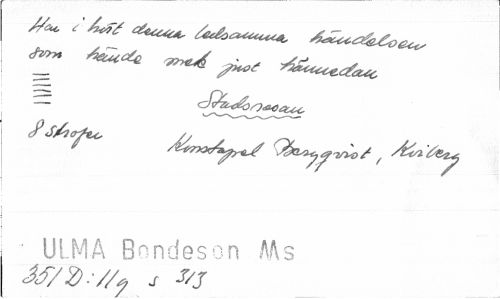 Har i hört denna ledsamma händelsen
som hände mek just hännedan
Stadsresan
8 strofer
Konstapel Bergqvist, Kviberg
ULMA Bondeson Ms
351 D:11g s 313